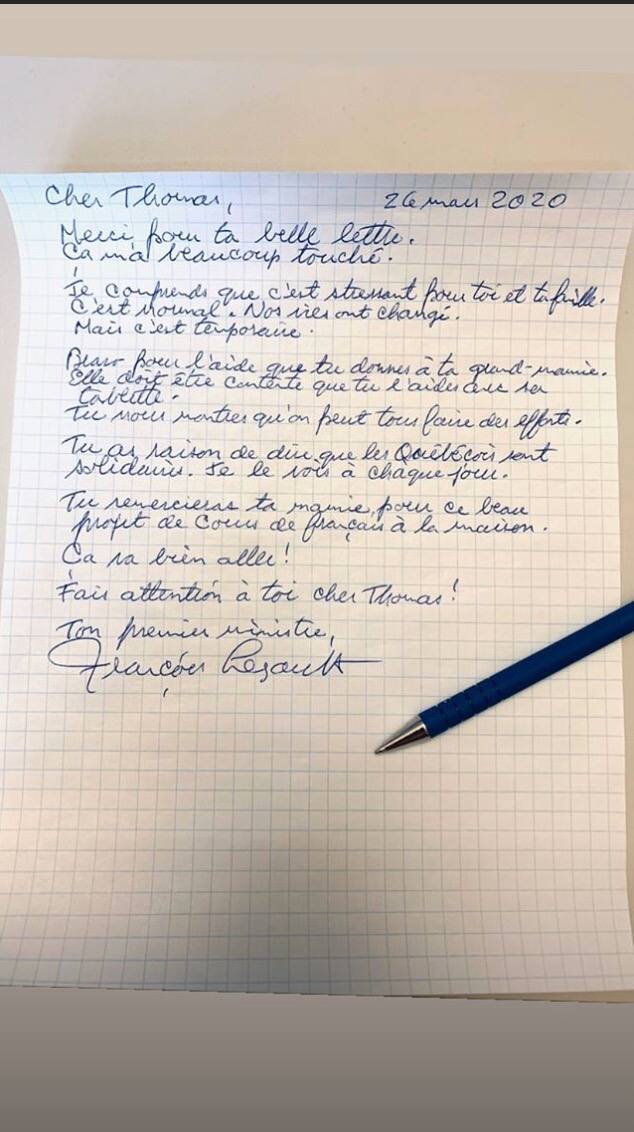 Cher Thomas, 26 mars 2020
Merci pour ta belle lettre.
Ça m'a beaucoup touché.
Je comprends que c'est stressant pour toi et ta famille.
C'est normal. Nos vies ont changé.
Mais c'est temporaire.
Bravo pour l'aide que tu donnes à ta grand-mamie.
Elle doit être contente que tu l'aides avec sa
tablette.
Tu nous montres qu'on peut tous faire des efforts.
Tu as raison de dire que les Québécois sont
solidaires. Je le vois à chaque jour.
Tu remercieras ta mamie, pour ce beau
projet de cours de français à la maison.
Ça va bien aller!
Fais attention à toi cher Thomas!
Ton premier ministre,
François Legault